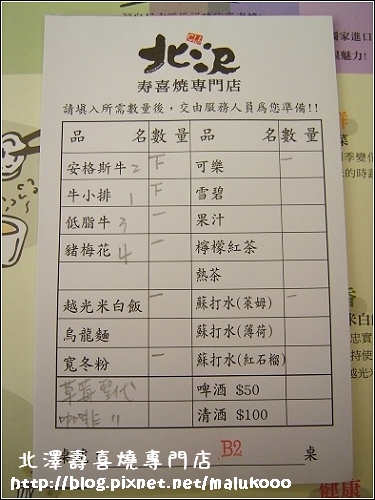 北沢
寿喜燒專門店
請填入所需數量後,交由服務人員為您準備!!
品名 數量 品名 數量
安格斯牛 2 下 可樂 一
牛小排 1 下 雪碧
低脂牛 3 一 果汁
豬梅花 4 一 檸檬紅茶
熱茶
越光米白飯 一 蘇打水(萊姆) 一
烏龍麵 蘇打水(薄荷)
寬冬粉 一 蘇打水(紅石榴)
草莓聖代 啤酒 $50
咖啡 11 清酒 $100
B2 桌
獨家進口
魅力!
菜
米白飯
忠實
持使
越光
健康
北澤壽喜燒專門店
http://blog.pixnet.net/malukooo